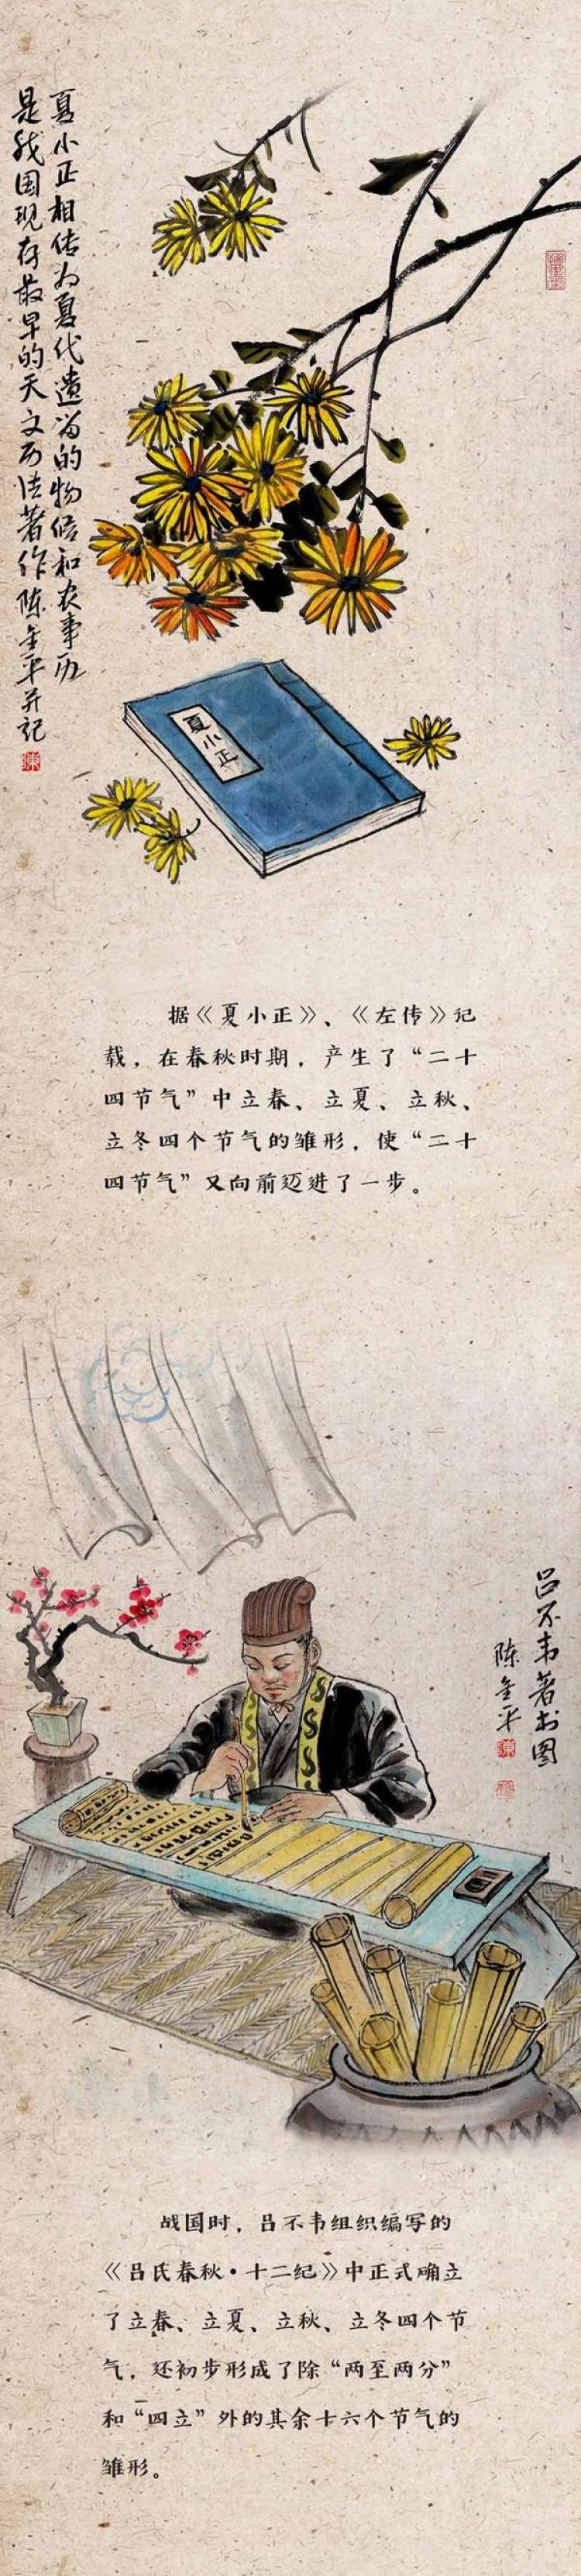 夏小正相传为夏代遗留的物候和农事历
是我国现存最早的天文历法著作陈金平并记
陳
夏小正
据《夏小正》、《左传》记
载，在春秋时期，产生了“二十
四节气”中立春、立夏、立秋、
立冬四个节气的雏形，使“二十
四节气”又向前迈进了一步。
吕不韦著书图
陈金平
陳
战国时，吕不韦组织编写的
《吕氏春秋·十二纪》中正式确立
了立春、立夏、立秋、立冬四个节
气，还初步形成了除“两至两分”
和“四立”外的其余十六个节气的
雏形。